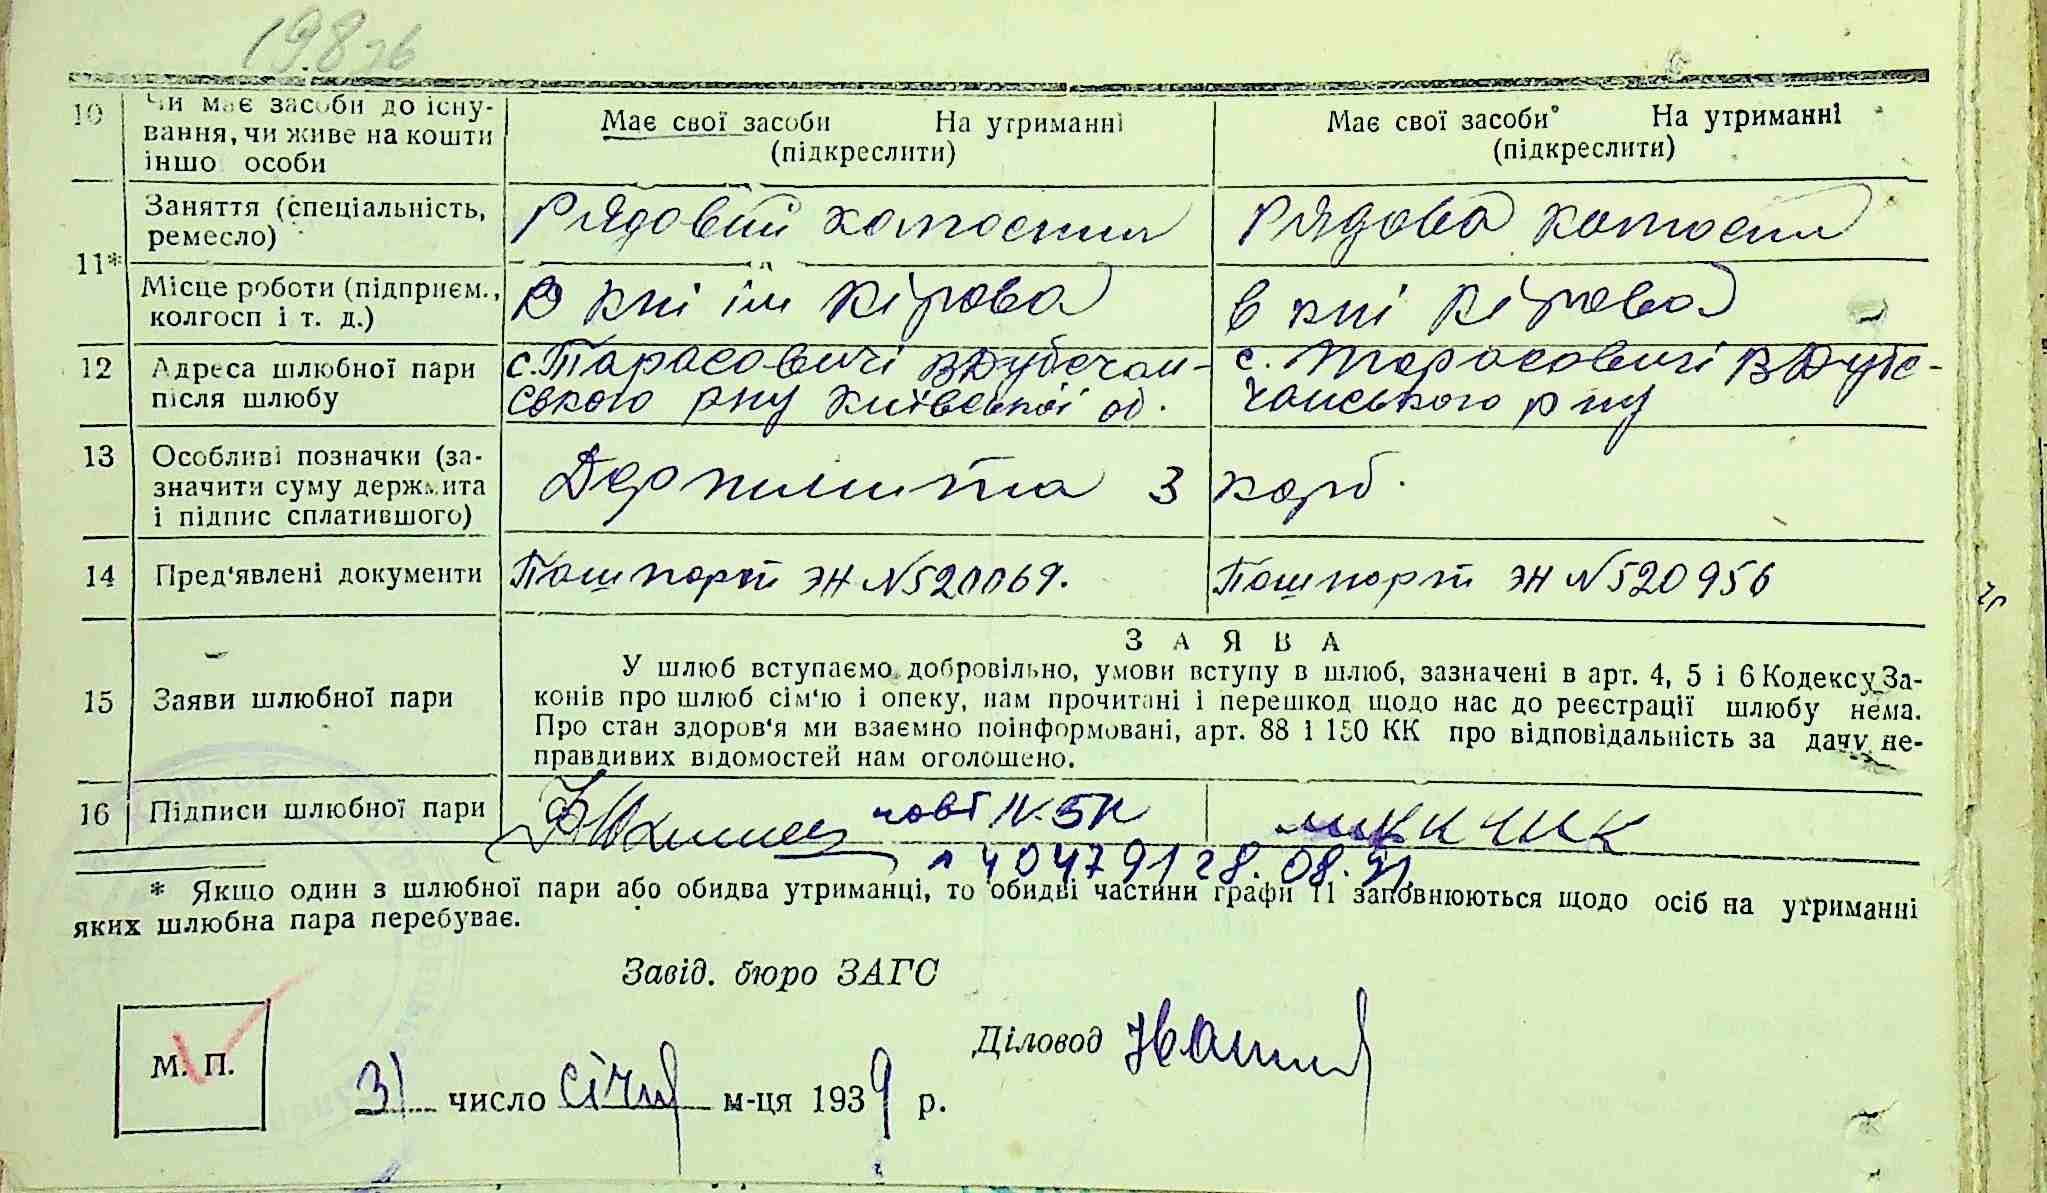 198зв
10 Чи має засоби до існу-
вання, чи живе на кошти
іншо особи
Має свої засоби На утриманні
(підкреслити)
Має свої засоби На утриманні
(підкреслити)
11* Заняття (спеціальність,
ремесло)
Рядовий колгоспник
Рядова колгоспн
Місце роботи (підприєм.,
колгосп і т. д.)
В кпі ім Кірова
в кпі Кірова
12 Адреса шлюбної пари
після шлюбу
с. Тарасовичі ВДубечан-
ського рну Київської об.
с. Тарасовичі ВДубе-
чанського рну
13 Особливі позначки (за-
значити суму держмита
і підпис сплатившого)
Держмита 3 карб.
14 Пред'явлені документи
Пашпорт ЭН №520069.
Пашпорт ЭН №520956
15 Заяви шлюбної пари
ЗАЯВА
У шлюб вступаємо добровільно, умови вступу в шлюб, зазначені в арт. 4, 5 і 6 Кодексу За-
конів про шлюб сім'ю і опеку, нам прочитані і перешкод щодо нас до реєстрації шлюбу нема.
Про стан здоров'я ми взаємно поінформовані, арт. 88 і 150 КК про відповідальність за дачу не-
правдивих відомостей нам оголошено.
16 Підписи шлюбної пари
повт IV-БК
404791 28.08.91.
* Якщо один з шлюбної пари або обидва утриманці, то обидві частини графи 11 заповнюються щодо осіб на утриманні
яких шлюбна пара перебуває.
Завід. бюро ЗАГС
Діловод
М. П.
31 число січня м-ця 1939 р.